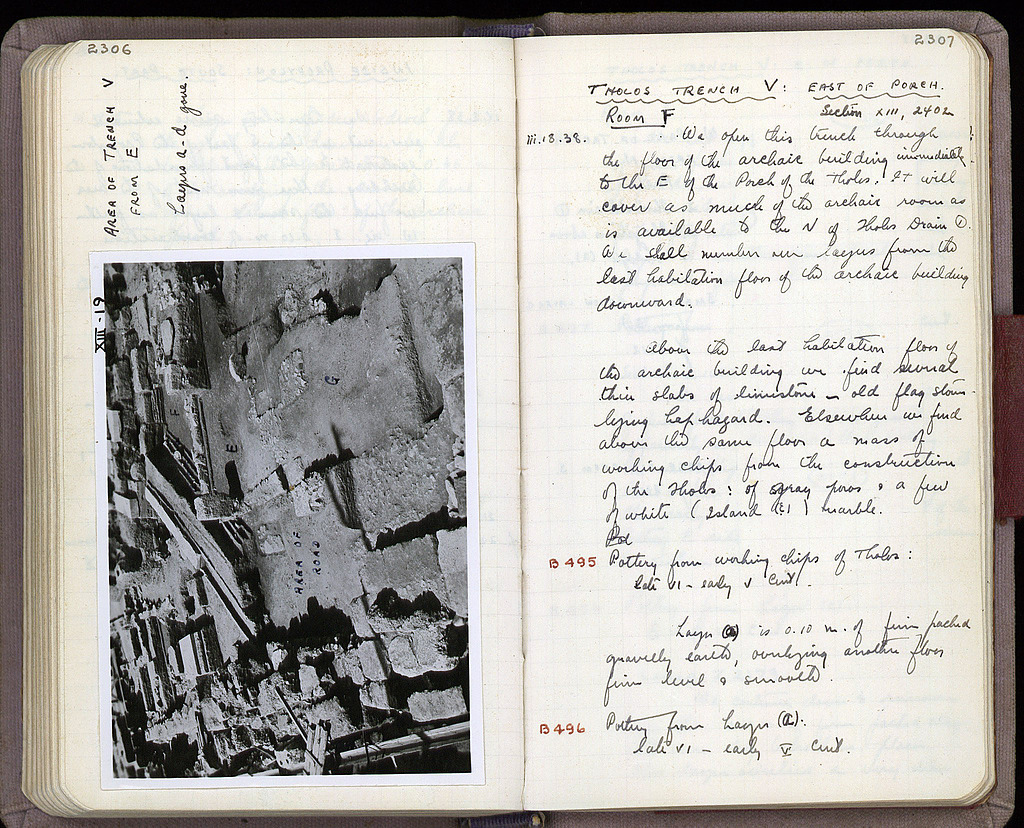 2306
AREA OF TRENCH V
FROM E
Layers a-d gone.
XIII-19
F
E
G
AREA OF
ROAD
2307
THOLOS TRENCH V: EAST OF PORCH.
Room F
Section XIII, 2402
III.18.38. We open this trench through
the floor of the archaic building immediately
to the E of the Porch of the Tholos. It will
cover as much of the archaic room as
is available to the N of Tholos Drain ①.
We shall number our layers from the
last habitation floor of the archaic building
downward.
Above the last habitation floor of
the archaic building we find several
thin slabs of limestone – old flag stones
lying haphazard. Elsewhere we find
above the same floor a mass of
working chips from the construction
of the Tholos: of gray poros & a few
of white (Island) marble.
B 495 Pottery from working chips of Tholos:
late VI – early V Cent.
Layer (a) is 0.10 m. of firm packed
gravelly earth, overlying another floor
firm level & smooth.
B 496 Pottery from Layer (a):
late VI – early V Cent.